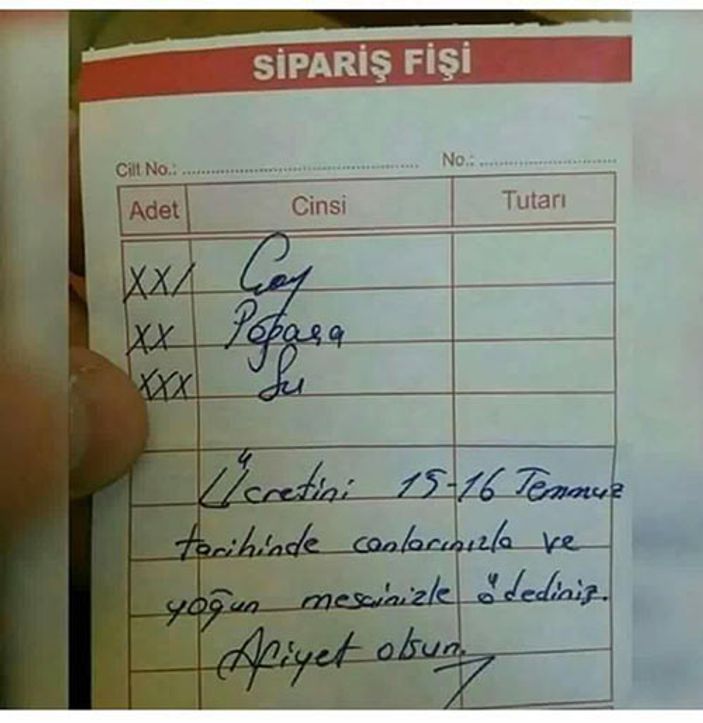 SİPARİŞ FİŞİ
Cilt No.: ........................ No.: ........................
Adet Cinsi Tutarı
XX/ Çay
XX Poğaça
XXX Su
Ücretini 15-16 Temmuz
tarihinde canlarınızla ve
yoğun mesainizle ödediniz.
Afiyet olsun.